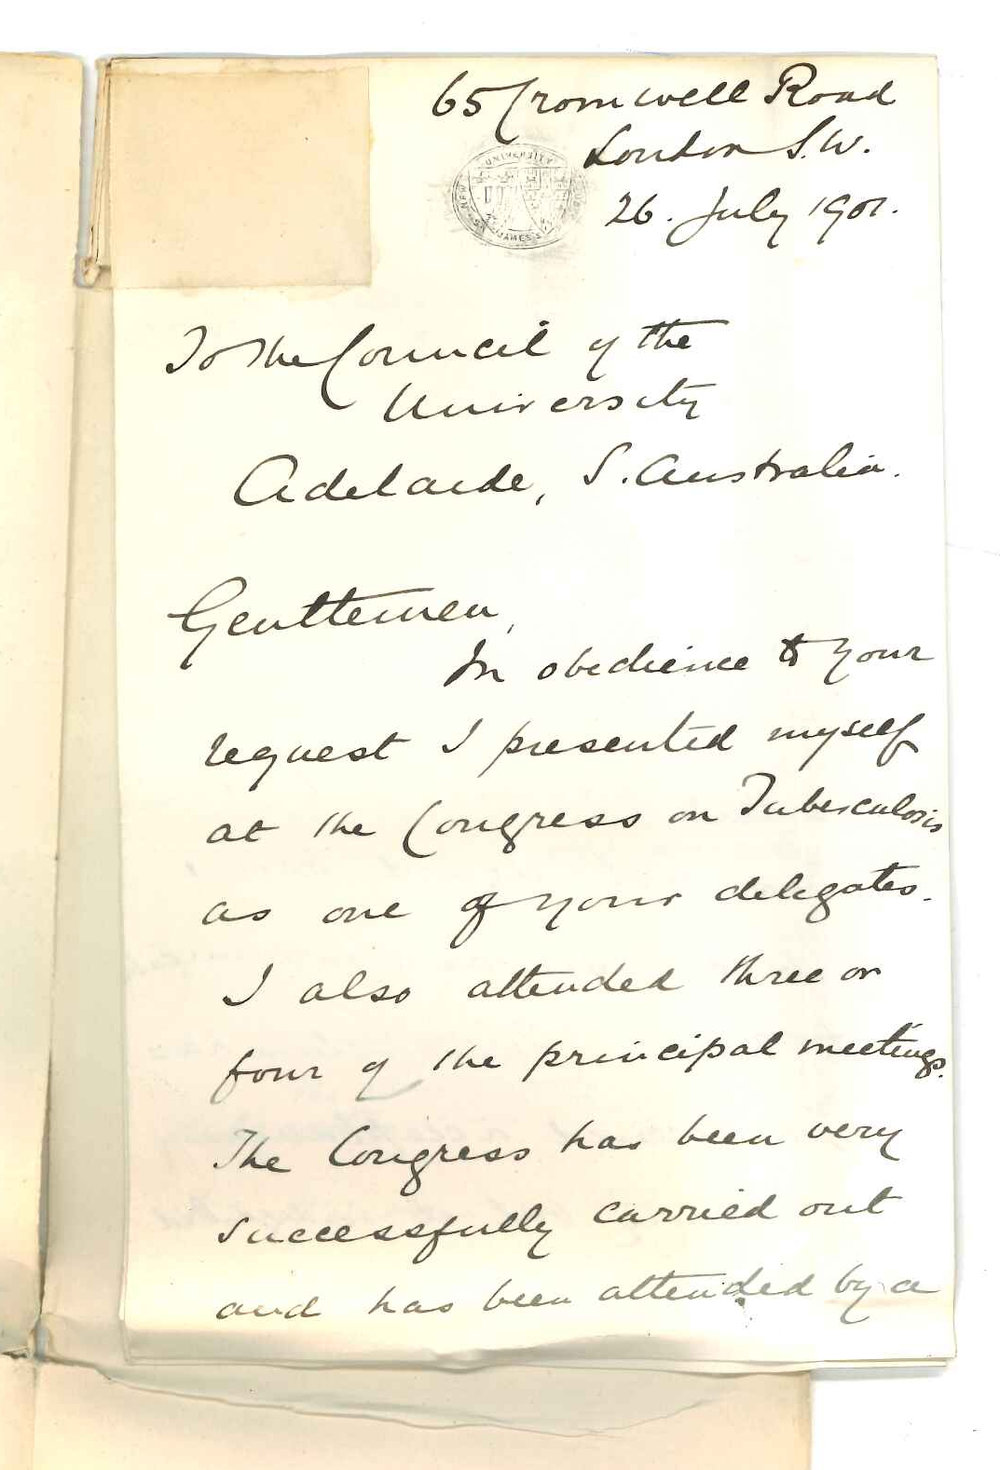 65 Cromwell Road
London S.W.
26. July 1901.
UNIVERSITY
ST JAMES'S
To the Council of the
University
Adelaide, S. Australia.
Gentlemen,
In obedience to your
request I presented myself
at the Congress on Tuberculosis
as one of your delegates.
I also attended three or
four of the principal meetings.
The Congress has been very
successfully carried out
and has been attended by a